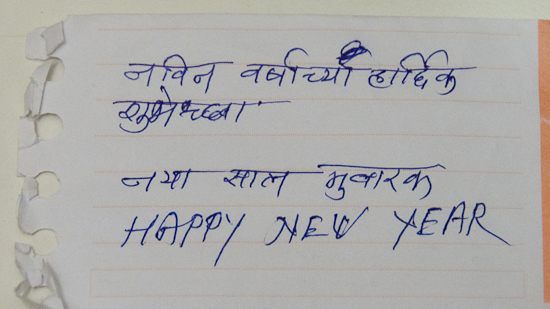 नविन वर्षाच्या हार्दिक
शुभेच्छा
नया साल मुबारक
HAPPY NEW YEAR